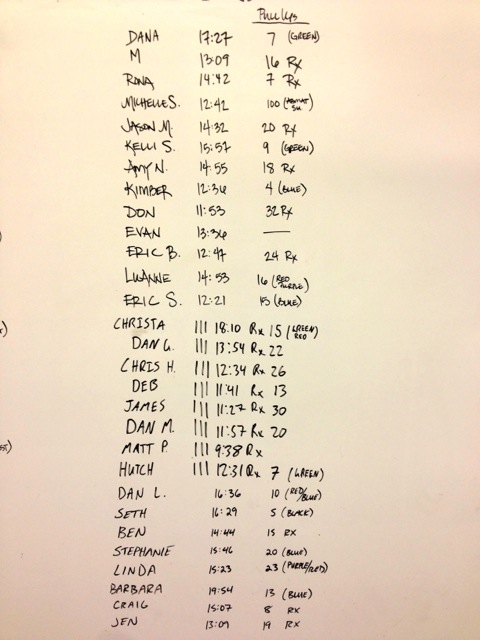 Pull Ups
DANA 17:27 7 (GREEN)
M 13:09 16 Rx
RONA 14:42 7 Rx
MICHELLE S. 12:42 100
JASON M. 14:32 20 Rx
KELLI S. 15:57 9 (GREEN)
AMY N. 14:55 18 Rx
KIMBER 12:36 4 (BLUE)
DON 11:53 32 Rx
EVAN 13:36 —
ERIC B. 12:47 24 Rx
LUANNE 14:53 16 (RED PURPLE)
ERIC S. 12:21 15 (BLUE)
CHRISTA ||| 18:10 Rx 15 (GREEN RED
DAN G. ||| 13:54 Rx 22
CHRIS H. ||| 12:34 Rx 26
DEB ||| 11:41 Rx 13
JAMES ||| 11:27 Rx 30
DAN M. ||| 11:57 Rx 20
MATT P. ||| 9:38 Rx
HUTCH ||| 12:31 Rx 7 (GREEN)
DAN L. 16:36 10 (RED/BLUE)
SETH 16:29 5 (BLACK)
BEN 14:44 15 RX
STEPHANIE 15:46 20 (BLUE)
LINDA 15:23 23 (PURPLE/RED)
BARBARA 19:54 13 (BLUE)
CRAIG 15:07 8 RX
JEN 13:09 19 RX